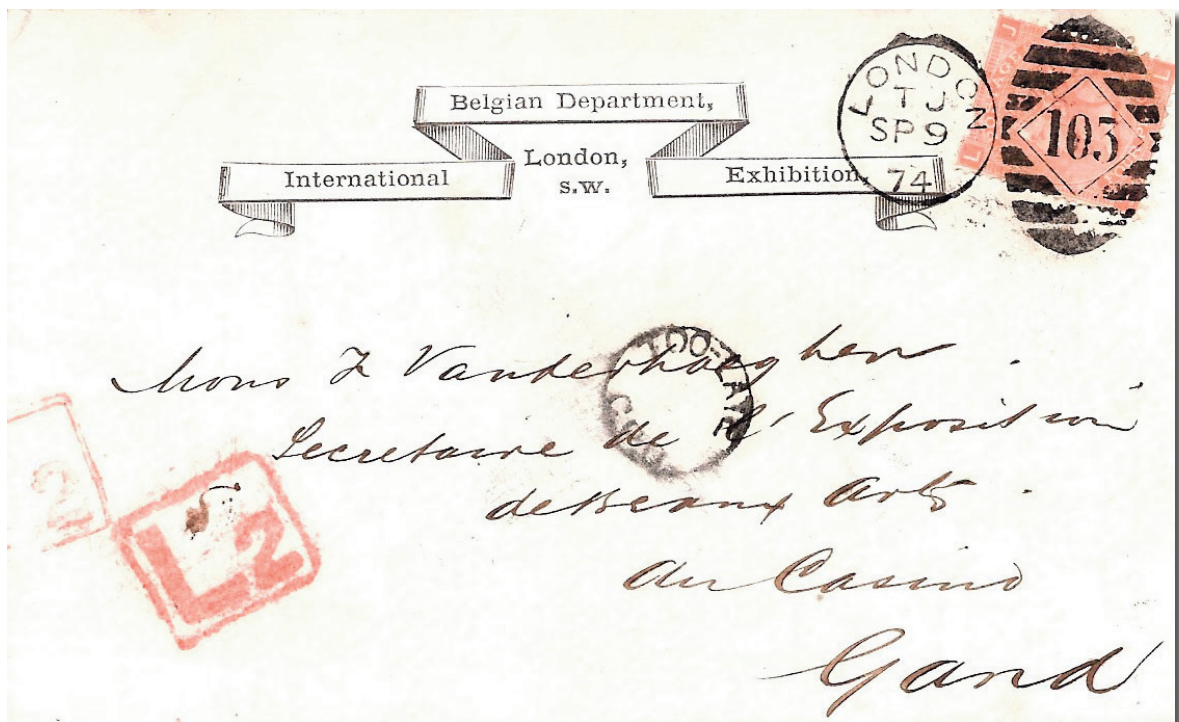 Belgian Department,
International
London,
S.W.
Exhibition,
LONDON
TJ
SP 9
74
103
J
L
L
TOO-LATE
Mons Vanderhaeghen
Secretaire de l'Exposition
de Beaux Arts
au Casino
Gand
2
L2